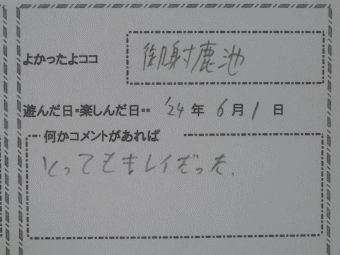 よかったよココ 御射鹿池
遊んだ日・楽しんだ日・・ '24 年 6 月 1 日
何かコメントがあれば
とってもキレイだった.